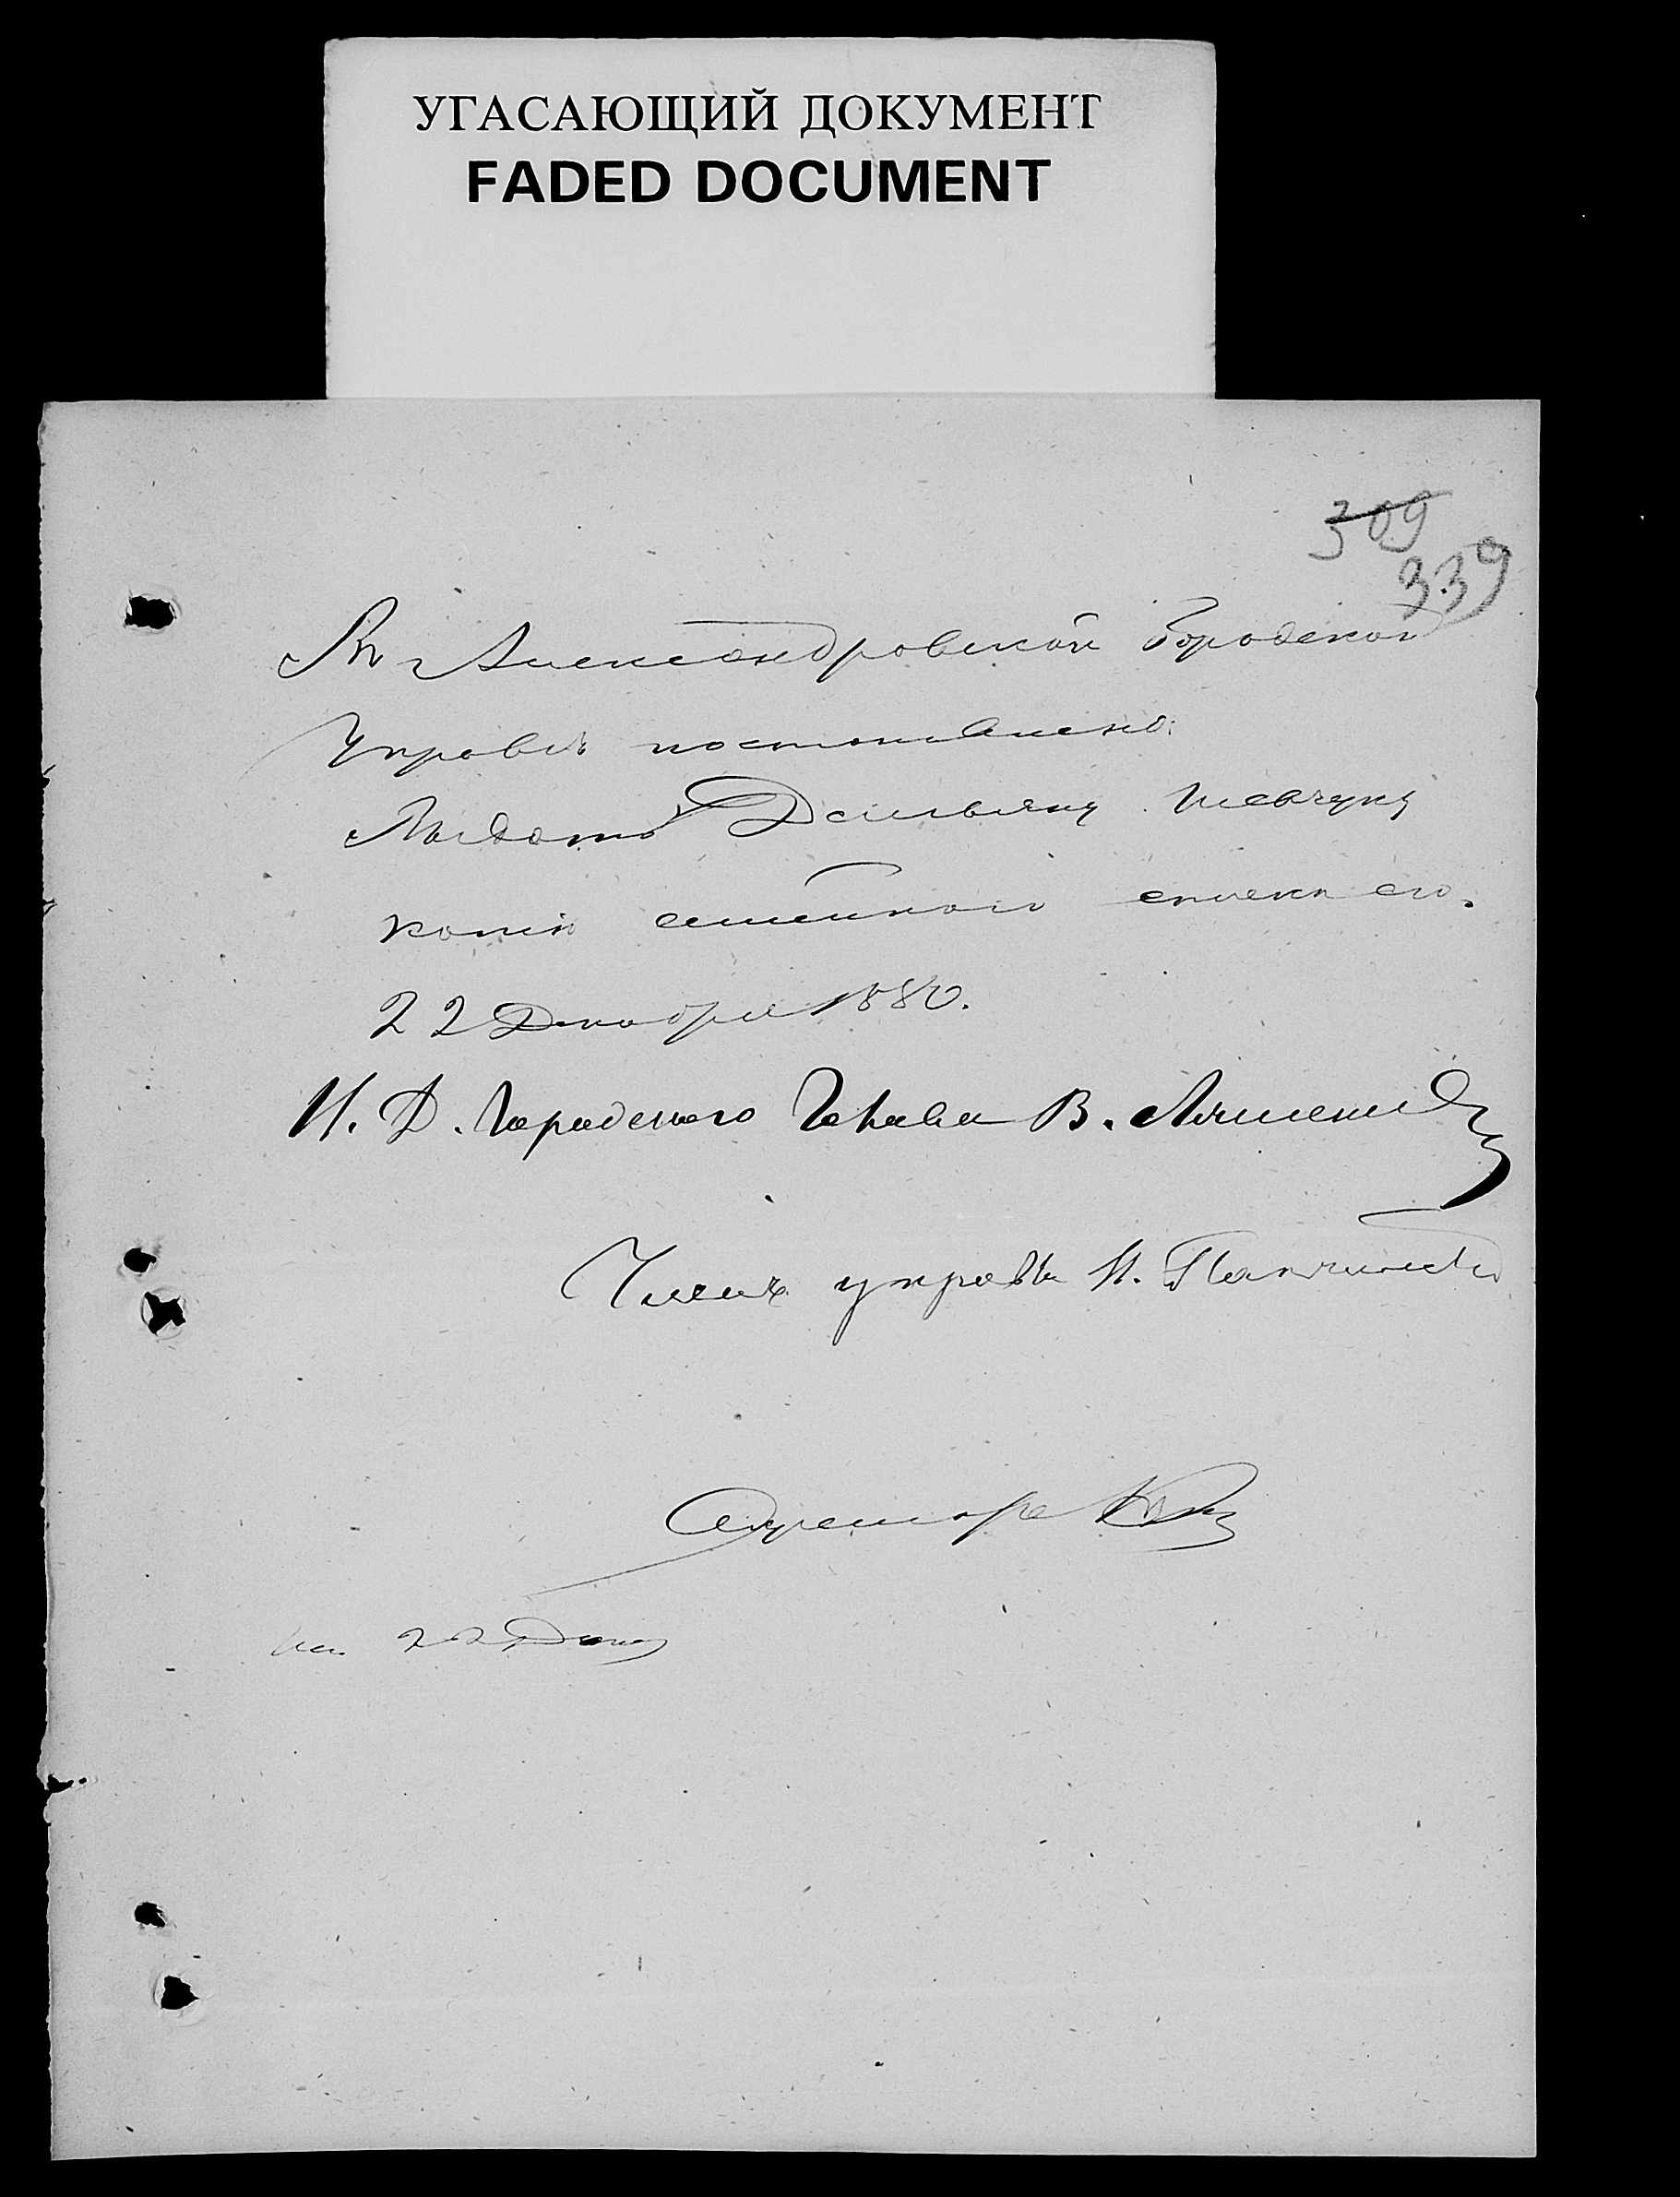 УГАСАЮЩИЙ ДОКУМЕНТ
FADED DOCUMENT
309
339
Въ Александровской Городской
Управѣ постановлено:
Выдать Демьяну Шевчуку
копію семейнаго списка его.
22 Декабря 1880.
И. Д. Городскаго Головы В. Ляшенко
Членъ управы И.
Секретарь
22 Дек